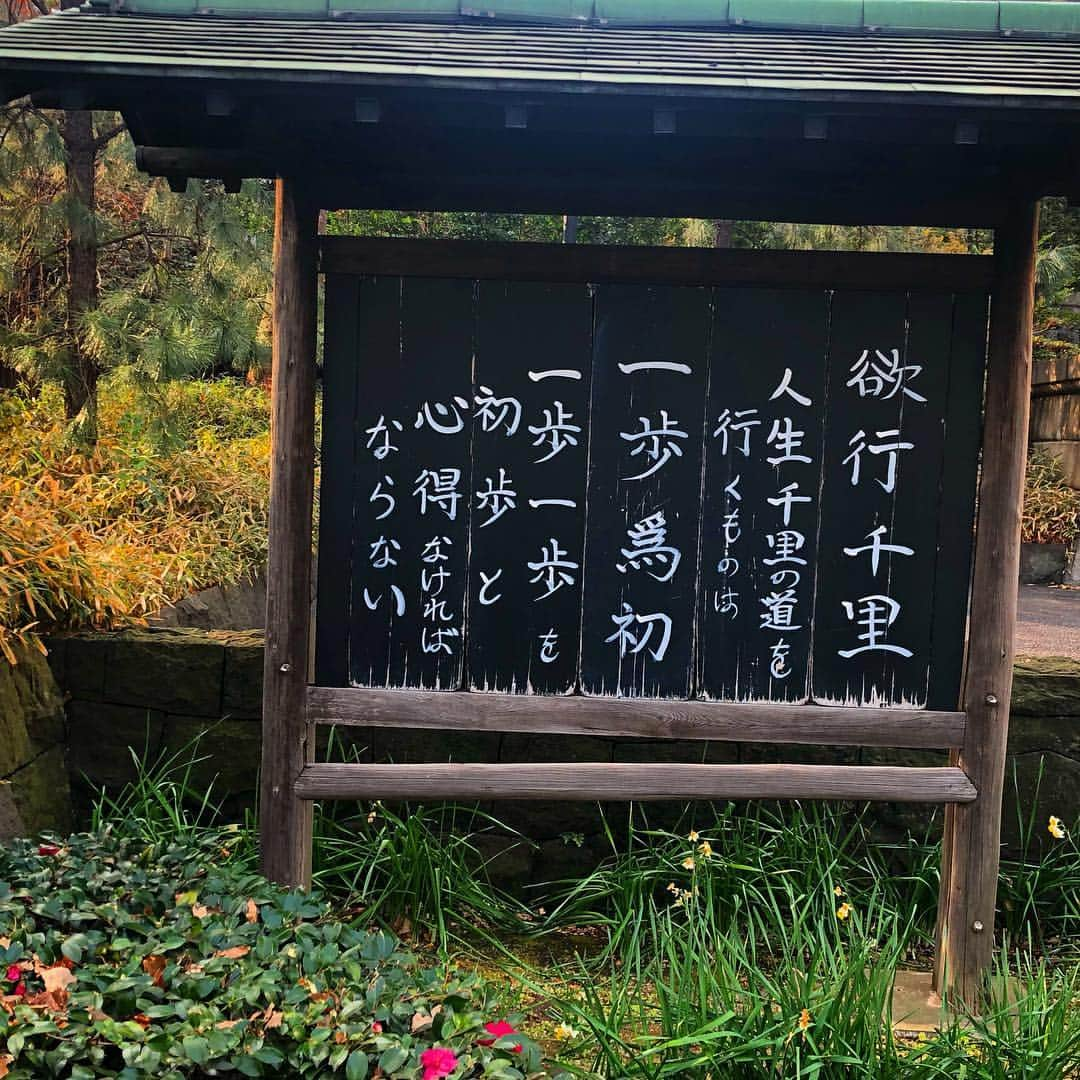 欲行千里
人生千里の道を
行くものは
一歩為初
一歩一歩を
初歩と
心得なければ
ならない